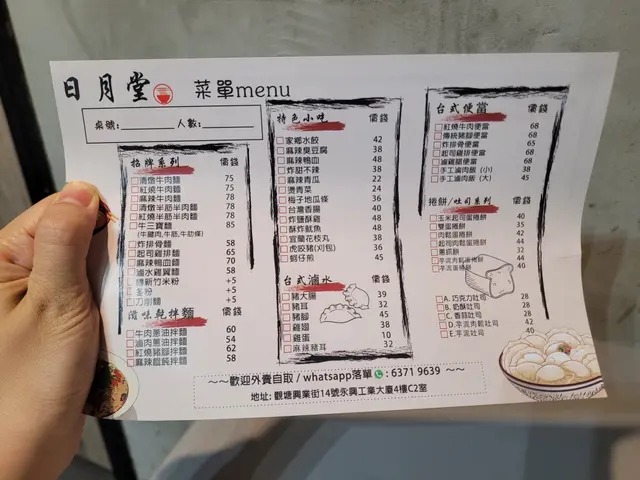 日月堂 菜單menu
桌號：________人數：________
招牌系列 價錢
清燉牛肉麵 75
紅燒牛肉麵 75
麻辣牛肉麵 78
清燉半筋半肉麵 78
紅燒半筋半肉麵 78
牛三寶麵 85
(牛腱肉,牛筋,牛肋條)
炸排骨麵 58
起司雞排麵 65
麻辣鴨血麵 70
滷水雞翼麵 58
轉新竹米粉 +5
冬粉 +5
刀削麵 +5
滋味乾拌麵 價錢
牛肉蔥油拌麵 60
滷肉蔥油拌麵 54
紅燒豬腳拌麵 62
麻辣餛飩拌麵 58
特色小吃 價錢
家鄉水餃 42
麻辣臭豆腐 38
麻辣鴨血 48
炸甜不辣 38
麻辣青瓜 22
燙青菜 24
梅子地瓜條 36
台灣香腸 40
炸鹽酥雞 48
酥炸魷魚 48
宜蘭花枝丸 38
虎咬豬(刈包) 36
蚵仔煎 45
台式滷水 價錢
豬大腸 39
豬耳 32
豬腳 45
雞翅 38
雞蛋 10
麻辣豬耳 32
台式便當 價錢
紅燒牛肉便當 68
傳統豬腳便當 68
炸排骨便當 65
起司雞排便當 68
滷雞腿便當 68
手工滷肉飯（小） 38
手工滷肉飯（大） 45
捲餅/吐司系列 價錢
玉米起司蛋捲餅 40
雙蛋捲餅 35
肉鬆蛋捲餅 42
起司肉鬆蛋捲餅 44
蔥抓餅 32
芋泥肉鬆蛋捲餅 44
芋泥蛋捲餅 40
A. 巧克力吐司 28
B. 奶酥吐司 28
C. 香蒜吐司 28
D.芋泥肉鬆吐司 42
E.芋泥吐司 28
～～歡迎外賣自取 / whatsapp落單 : 6371 9639 ～～
地址: 觀塘興業街14號永興工業大廈4樓C2室